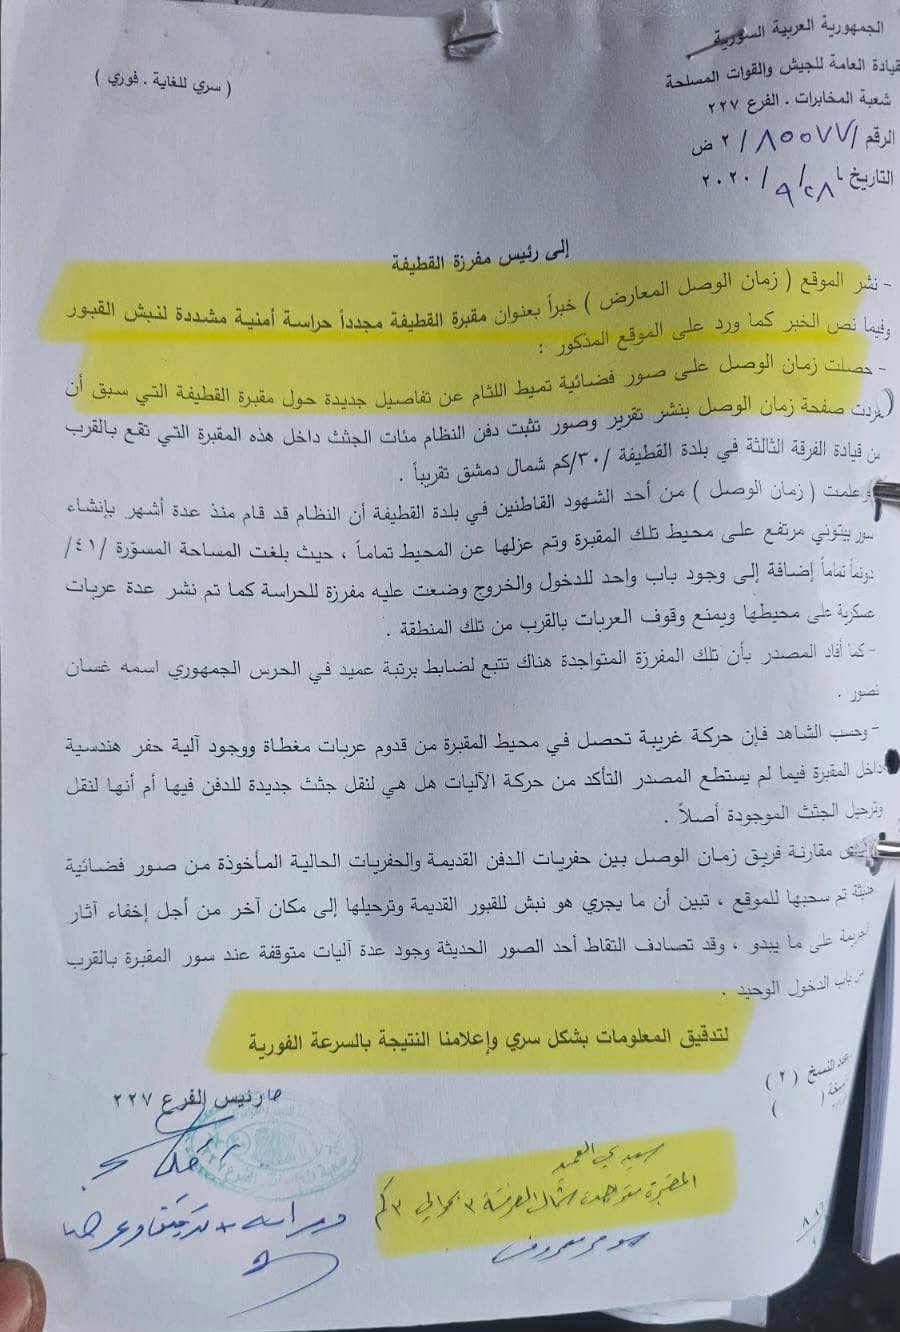 الجمهورية العربية السورية
قيادة العامة للجيش والقوات المسلحة
( سري للغاية . فوري )
شعبة المخابرات . الفرع ٢٢٧
الرقم / ٨٥٥٧٧ / ٢ ض
التاريخ ٢٨ / ٩ / ٢٠٢٠
إلى رئيس مفرزة القطيفة
- نشر الموقع ( زمان الوصل المعارض ) خبراً بعنوان مقبرة القطيفة مجدداً حراسة أمنية مشددة لنبش القبور
وفيما نص الخبر كما ورد على الموقع المذكور :
- حصلت زمان الوصل على صور فضائية تميط اللثام عن تفاصيل جديدة حول مقبرة القطيفة التي سبق أن
صفحة زمان الوصل بنشر تقرير وصور تثبت دفن النظام مئات الجثث داخل هذه المقبرة التي تقع بالقرب
من قيادة الفرقة الثالثة في بلدة القطيفة /٣٠/كم شمال دمشق تقريباً .
وعلمت ( زمان الوصل ) من أحد الشهود القاطنين في بلدة القطيفة أن النظام قد قام منذ عدة أشهر بإنشاء
سور بيتوني مرتفع على محيط تلك المقبرة وتم عزلها عن المحيط تماماً ، حيث بلغت المساحة المسوّرة /٤١/
دونماً تماماً إضافة إلى وجود باب واحد للدخول والخروج وضعت عليه مفرزة للحراسة كما تم نشر عدة عربات
عسكرية على محيطها ويمنع وقوف العربات بالقرب من تلك المنطقة .
- كما أفاد المصدر بأن تلك المفرزة المتواجدة هناك تتبع لضابط برتبة عميد في الحرس الجمهوري اسمه غسان
نصور .
- وحسب الشاهد فإن حركة غريبة تحصل في محيط المقبرة من قدوم عربات مغطاة ووجود آلية حفر هندسية
داخل المقبرة فيما لم يستطع المصدر التأكد من حركة الآليات هل هي لنقل جثث جديدة للدفن فيها أم أنها لنقل
وترحيل الجثث الموجودة أصلاً .
مقارنة فريق زمان الوصل بين حفريات الدفن القديمة والحفريات الحالية المأخوذة من صور فضائية
حديثة تم سحبها للموقع ، تبين أن ما يجري هو نبش للقبور القديمة وترحيلها إلى مكان آخر من أجل إخفاء آثار
الجريمة على ما يبدو ، وقد تصادف التقاط أحد الصور الحديثة وجود عدة آليات متوقفة عند سور المقبرة بالقرب
من باب الدخول الوحيد .
لتدقيق المعلومات بشكل سري وإعلامنا النتيجة بالسرعة الفورية
عدد النسخ ( ٢ )
رئيس الفرع ٢٢٧
سيدي العميد
المقبرة متواجدة شمال الفرقة ٣ بحوالي ٣ كم